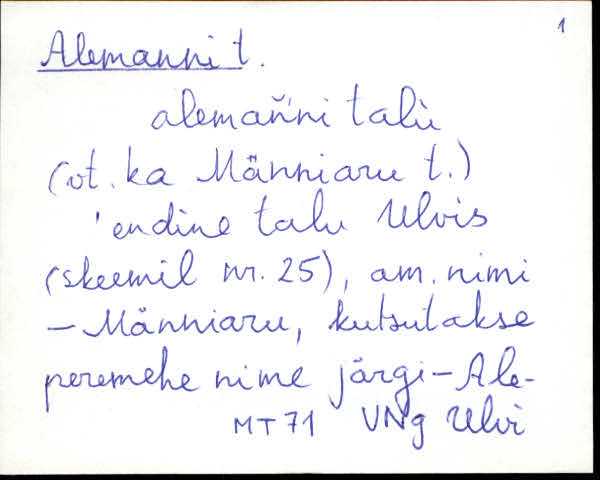 1
Alemanni t.
alemań'ni talù
(vt. ka Männiaru t.)
'endine talu Ulvis
(skeemil nr. 25), am. nimi
– Männiaru, kutsutakse
peremehe nime järgi – Ale-
MT 71 VNg Ulvi